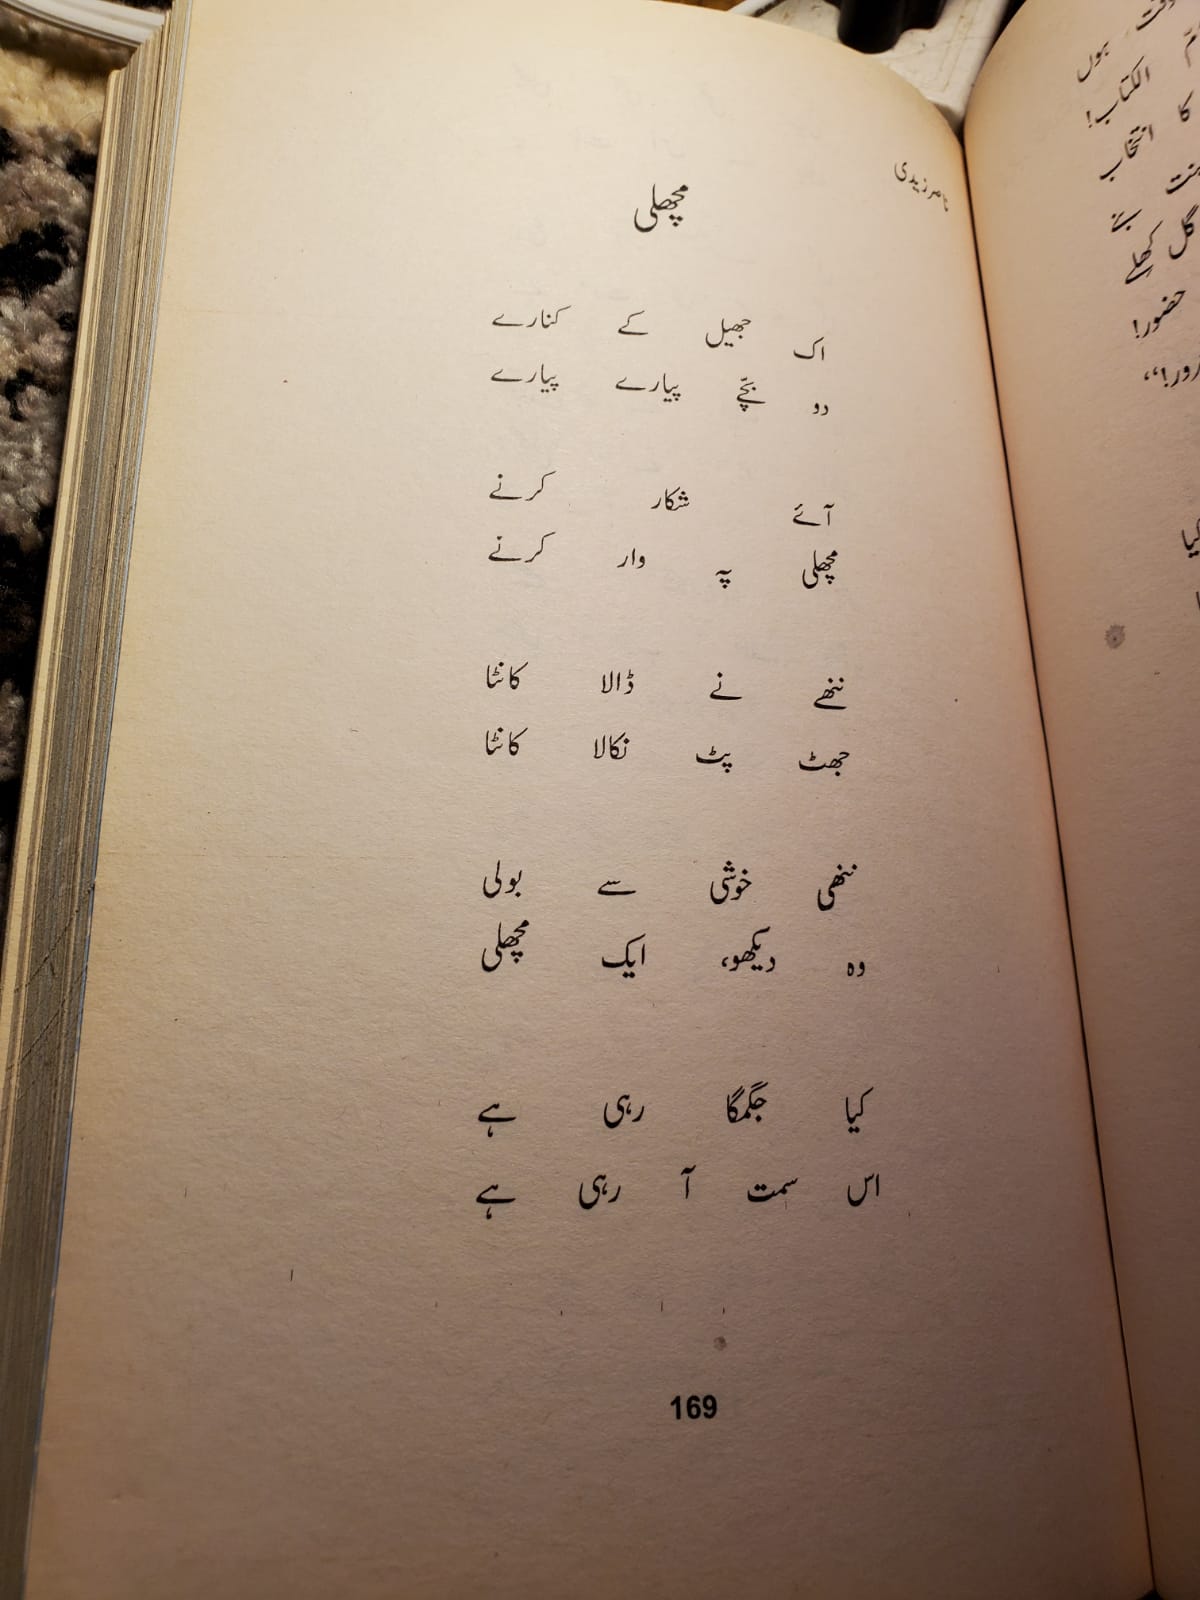 ناصر زیدی
مچھلی
اک جھیل کے کنارے
دو بچّے پیارے پیارے
آئے شکار کرنے
مچھلی پہ وار کرنے
ننھے نے ڈالا کانٹا
جھٹ پٹ نکالا کانٹا
ننھی خوشی سے بولی
وہ دیکھو، ایک مچھلی
کیا جگمگا رہی ہے
اس سمت آ رہی ہے
169
ہوں
الکتاب!
کا انتخاب
گل کھلے
حضور!